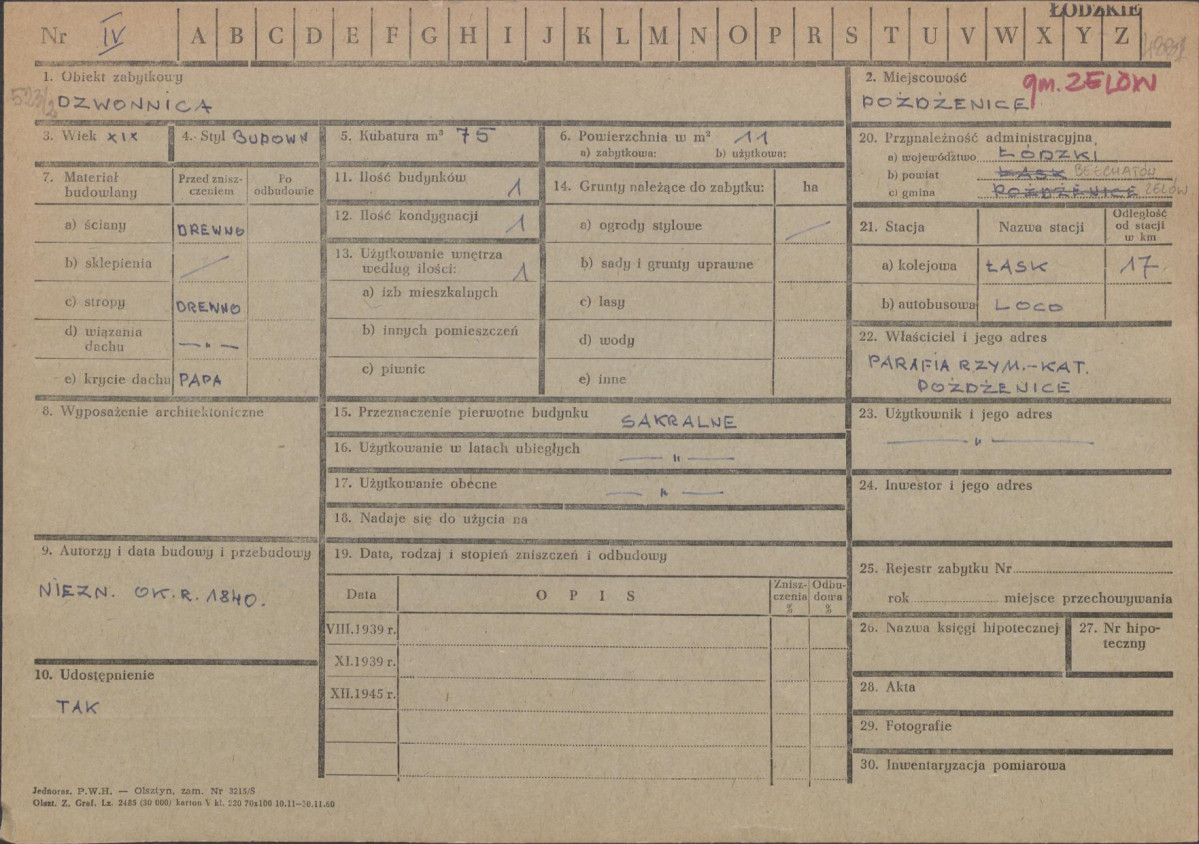 ŁÓDZKIE
Nr IV A B C D E F G H I J K L M N O P R S T U V W X Y Z
1. Obiekt zabytkowy
523/2 DZWONNICA
2. Miejscowość
gm. ZELÓW
POŻDŻENICE
3. Wiek XIX
4. Styl BUDOWN
5. Kubatura m³ 75
6. Powierzchnia w m² 11
a) zabytkowa: b) użytkowa:
20. Przynależność administracyjna
a) województwo ŁÓDZKI
b) powiat ŁASK BEŁCHATÓW
c) gmina POŻDŻENICE ZELÓW
7. Materiał budowlany
Przed zniszczeniem
Po odbudowie
a) ściany DREWNO
b) sklepienia /
c) stropy DREWNO
d) wiązania dachu — " —
e) krycie dachu PAPA
11. Ilość budynków 1
12. Ilość kondygnacji 1
13. Użytkowanie wnętrza według ilości: 1
a) izb mieszkalnych
b) innych pomieszczeń
c) piwnic
14. Grunty należące do zabytku: ha
a) ogrody stylowe /
b) sady i grunty uprawne
c) lasy
d) wody
e) inne
21. Stacja
Nazwa stacji
Odległość od stacji w km
a) kolejowa ŁASK 17
b) autobusowa LOCO
22. Właściciel i jego adres
PARAFIA RZYM.-KAT.
POŻDŻENICE
8. Wyposażenie architektoniczne
15. Przeznaczenie pierwotne budynku SAKRALNE
16. Użytkowanie w latach ubiegłych — " —
17. Użytkowanie obecne — " —
18. Nadaje się do użycia na
23. Użytkownik i jego adres
— " —
24. Inwestor i jego adres
9. Autorzy i data budowy i przebudowy
NIEZN. OK. R. 1840.
19. Data, rodzaj i stopień zniszczeń i odbudowy
Data
O P I S
Zniszczenia %
Odbudowa %
VIII.1939 r.
XI.1939 r.
XII.1945 r.
25. Rejestr zabytku Nr
rok miejsce przechowywania
26. Nazwa księgi hipotecznej
27. Nr hipoteczny
10. Udostępnienie
TAK
28. Akta
29. Fotografie
30. Inwentaryzacja pomiarowa
Jednoraz. P.W.H. — Olsztyn, zam. Nr 3215/S
Olszt. Z. Graf. Lz. 2485 (30 000) karton V kl. 220 70x100 10.11—30.11.60